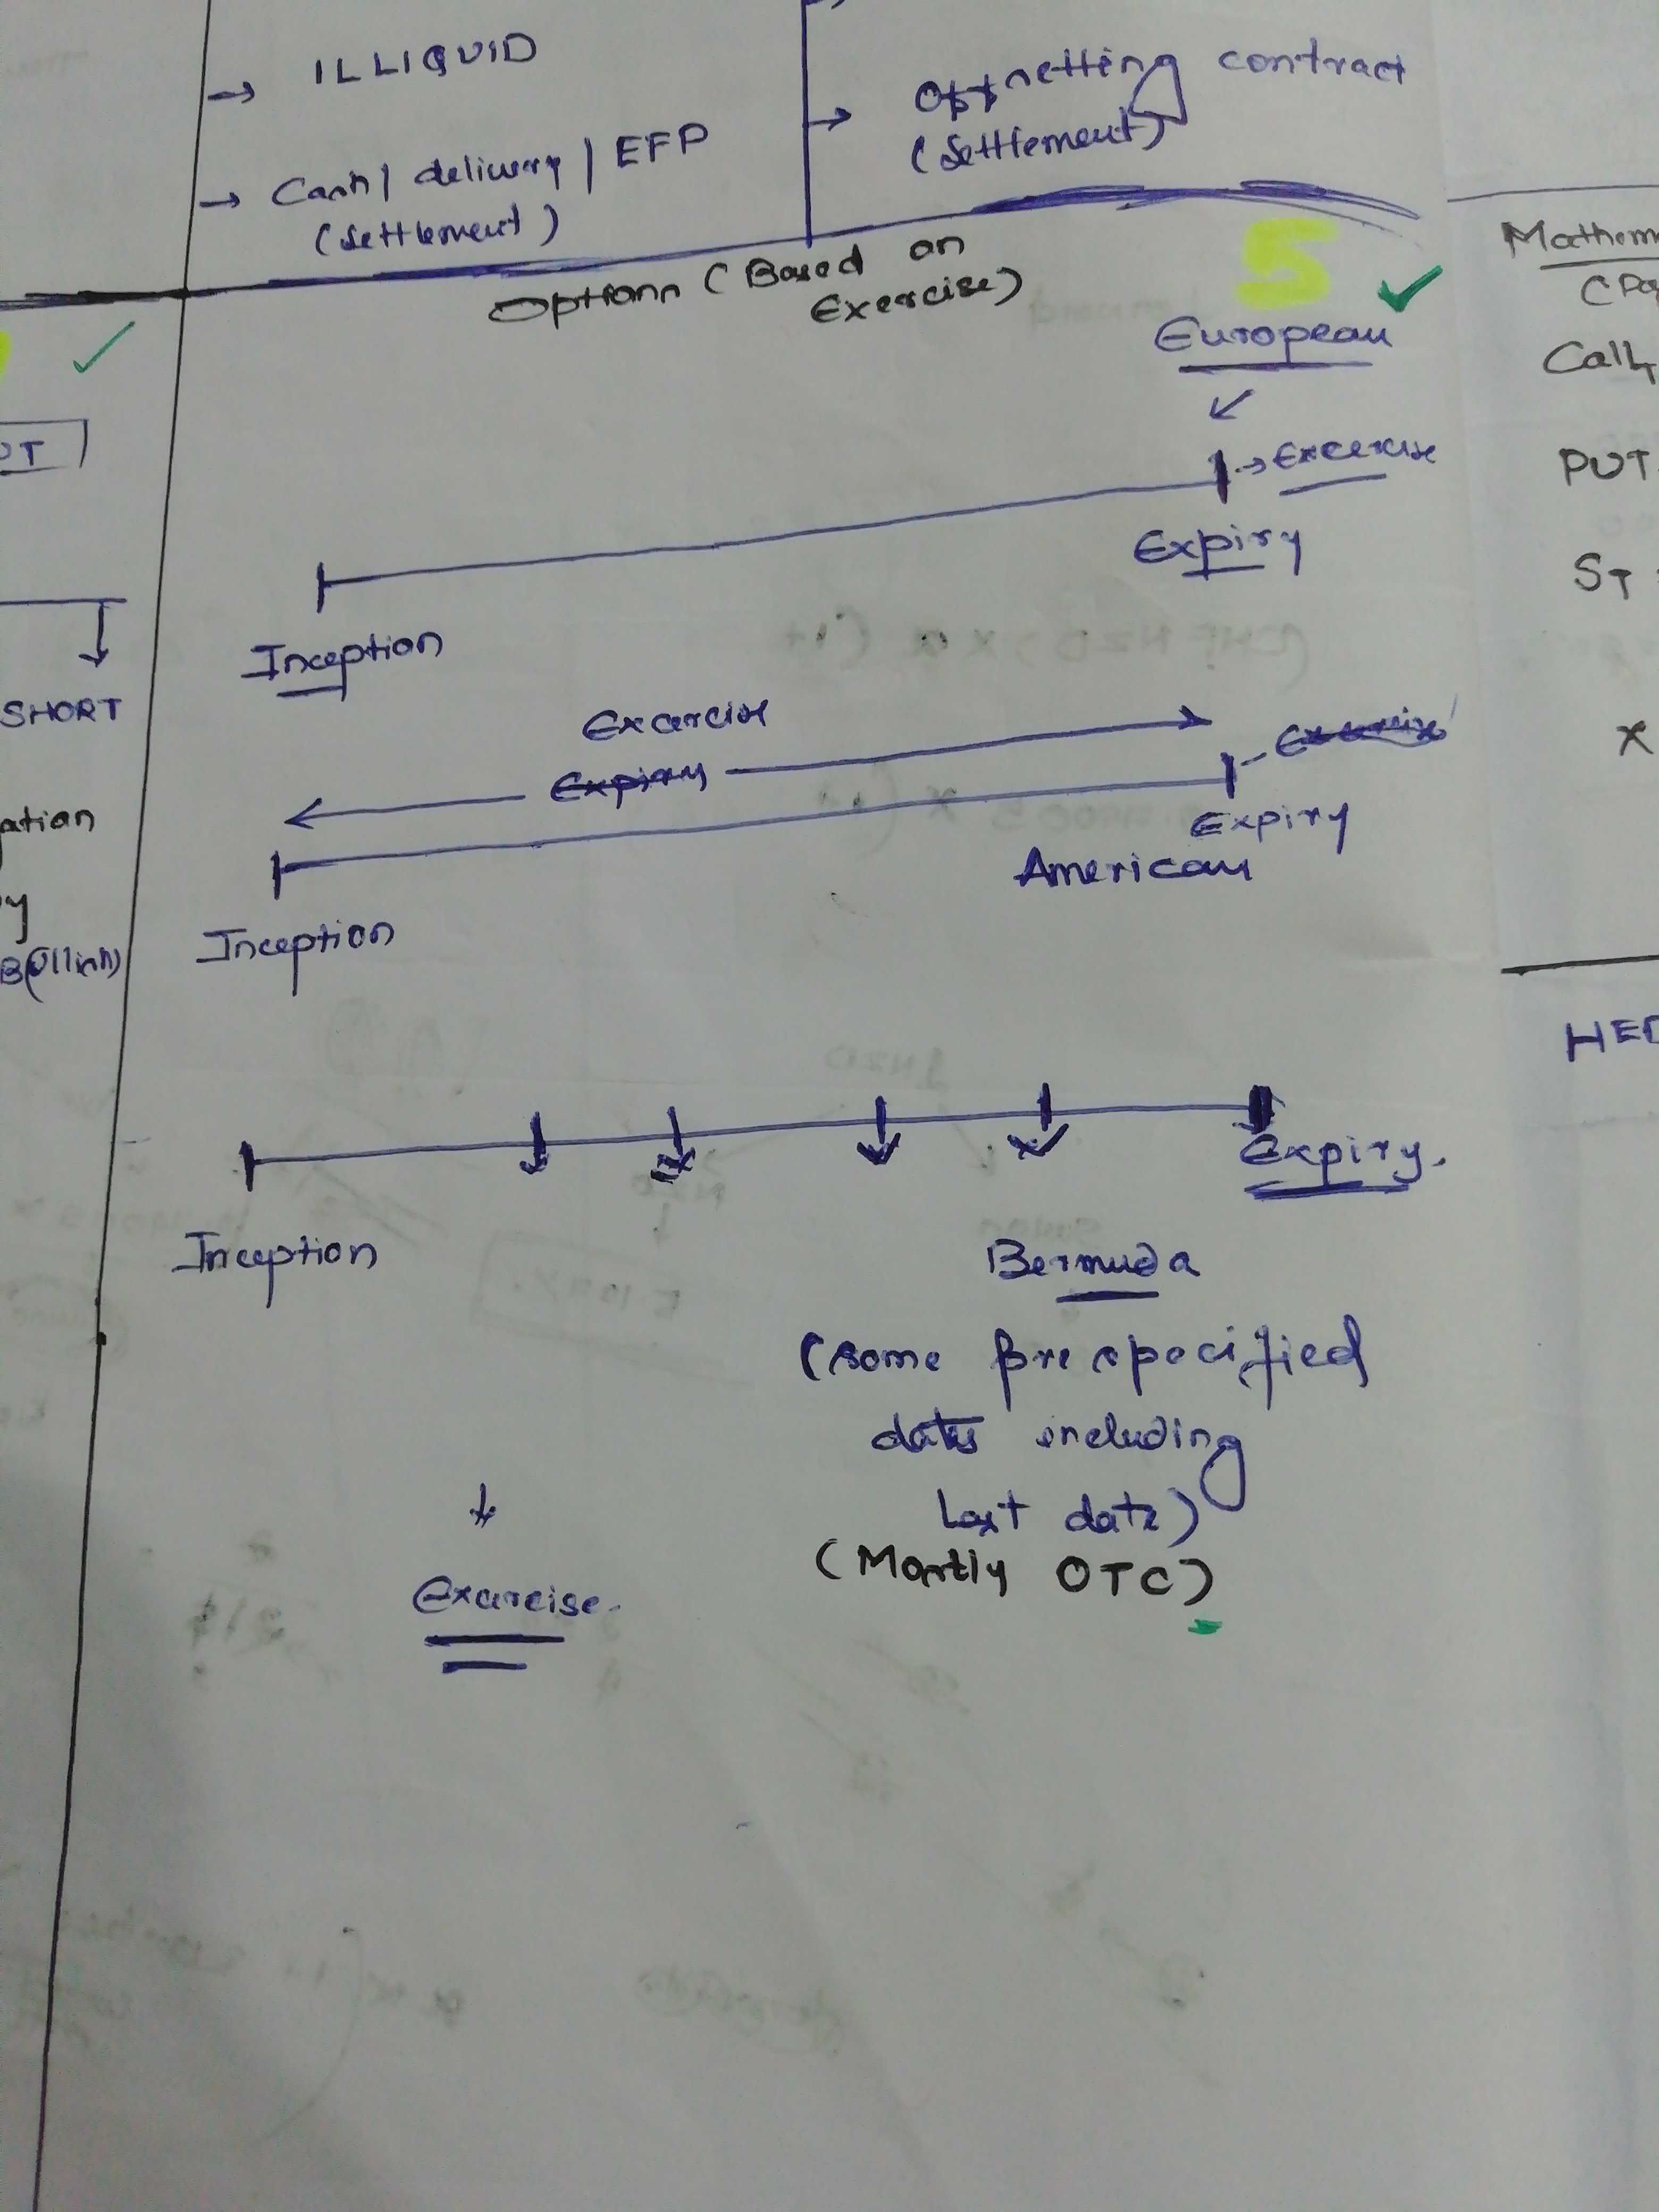 → ILLIQUID
→ Cash / delivery / EFP
(settlement)
→ Offsetting contract
(settlement)
Options (Based on
Exercise)
5 ✓
European
→ Excercise
Expiry
Inception
Exercise
Expiry
Exercise
Expiry
American
Inception
Expiry.
Inception
Bermuda
(some prespecified
dates including
last date)
(Mostly OTC)
↓
Exercise.
SHORT
Call
PUT
ST
X